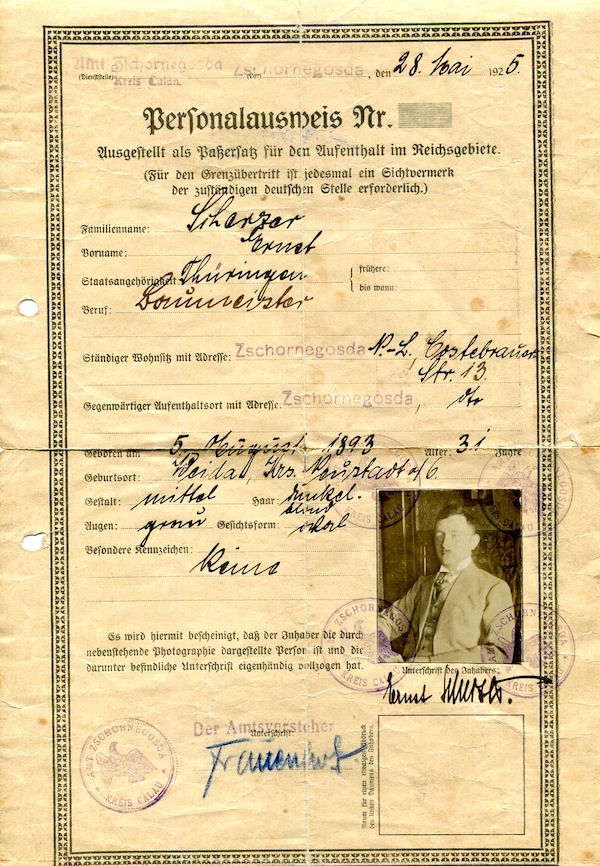 Amt Zschornegosda
(Dienststelle) Kreis Calau. Zschornegosda, den 28. Mai 1925.
Personalausweis Nr.
Ausgestellt als Paßersatz für den Aufenthalt im Reichsgebiete.
(Für den Grenzübertritt ist jedesmal ein Sichtvermerk
der zuständigen deutschen Stelle erforderlich.)
Familienname: Scherzer
Vorname: Ernst
Staatsangehörigkeit: Thüringen { frühere:
bis wann:
Beruf: Baumeister
Ständiger Wohnsitz mit Adresse: Zschornegosda N.-L., Costebrauer
Str. 13.
Gegenwärtiger Aufenthaltsort mit Adresse: Zschornegosda, dto
Geboren am 5. August 1893 Alter: 31 Jahre
Geburtsort: Weida, Krs. Neustadt
Gestalt: mittel Haar: dunkel-
blond
Augen: grau Gesichtsform: oval
Besondere Kennzeichen:
keine
Es wird hiermit bescheinigt, daß der Inhaber die durch
nebenstehende Photographie dargestellte Person ist und die
darunter befindliche Unterschrift eigenhändig vollzogen hat.
Unterschrift des Inhabers:
Ernst Scherzer.
Der Amtsvorsteher
Unterschrift:
AMT ZSCHORNEGOSDA
KREIS CALAU
Raum für einen etwaigen Abdruck
des linken Daumens des Inhabers.